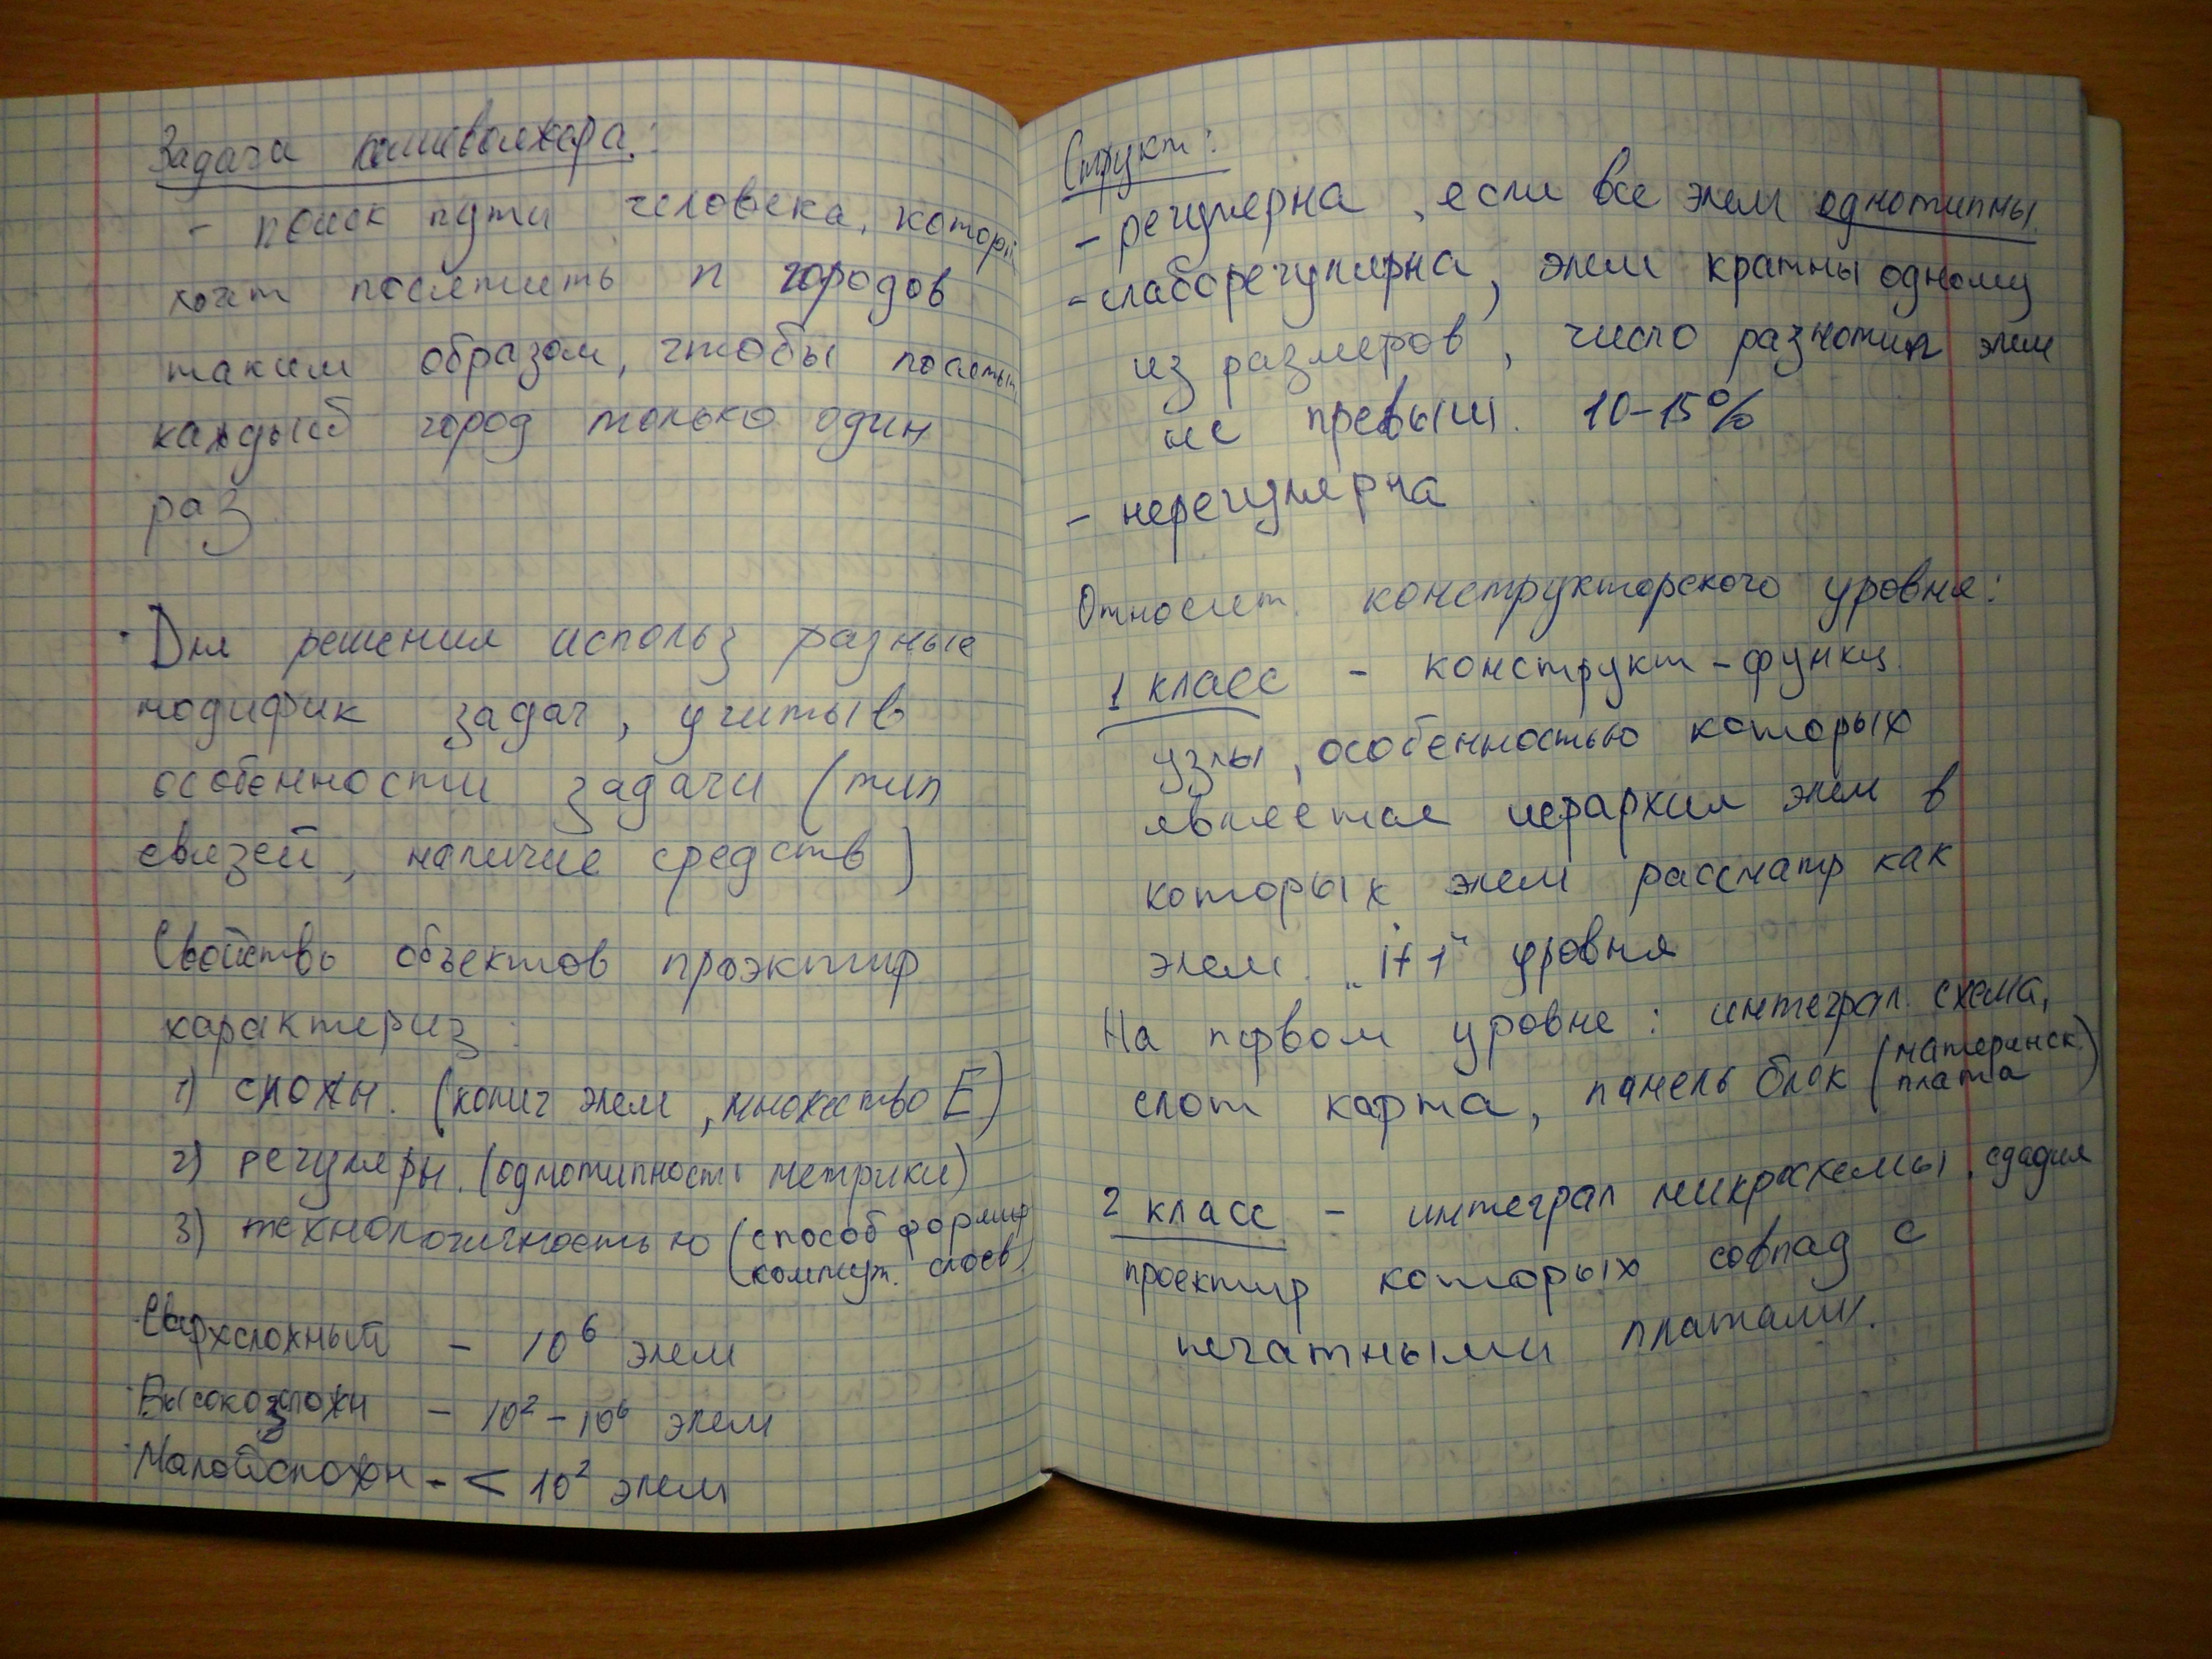 Задача коммивояжера:
- поиск пути человека, который
хочет посетить n городов
таким образом, чтобы посетить
каждый город только один
раз
Для решения использ разные
модифик задач, учитыв
особенности задачи (тип
связей, наличие средств)
Свойство объектов проэктир
характериз:
1) сложн. (колич элем, множество E)
2) регулярн. (однотипность метрики)
3) технологичностью (способ формир
коммут. слоев)
Сверхсложный - 10⁶ элем
Высокосложн - 10² - 10⁶ элем
Малойсложн - < 10² элем
Структ:
- регулярна, если все элем однотипны.
- слаборегулярна, элем кратны одному
из размеров, число разнотип элем
не превыш. 10-15%
- нерегулярна
Относит. конструкторского уровня:
1 класс - конструкт-функц.
узлы, особенностью которых
является иерархия элем в
которых элем рассматр как
элем. „i+1“ уровня
На первом уровне: интеграл. схема,
слот карта, панель блок (материнск.
плата)
2 класс - интеграл микросхемы,
проектир которых совпад с
печатными платами.